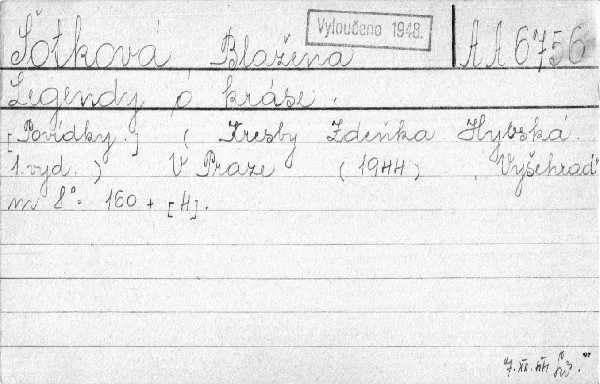 Vyloučeno 1948.
Šotková Blažena AA 6756
Legendy o kráse.
[Povídky.] (Kresby Zdeňka Hybská.
1. vyd.) V Praze (1944) Vyšehrad
m 8° 160 + [4].